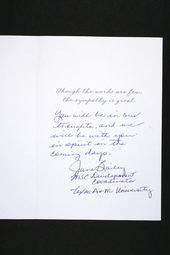 Though the words are few,
the sympathy is great.
You will be in our
thoughts, and we
will be with you
in spirit in the
coming days.
Jane Bailey
MSC Development
Coordinator
Texas A&M University